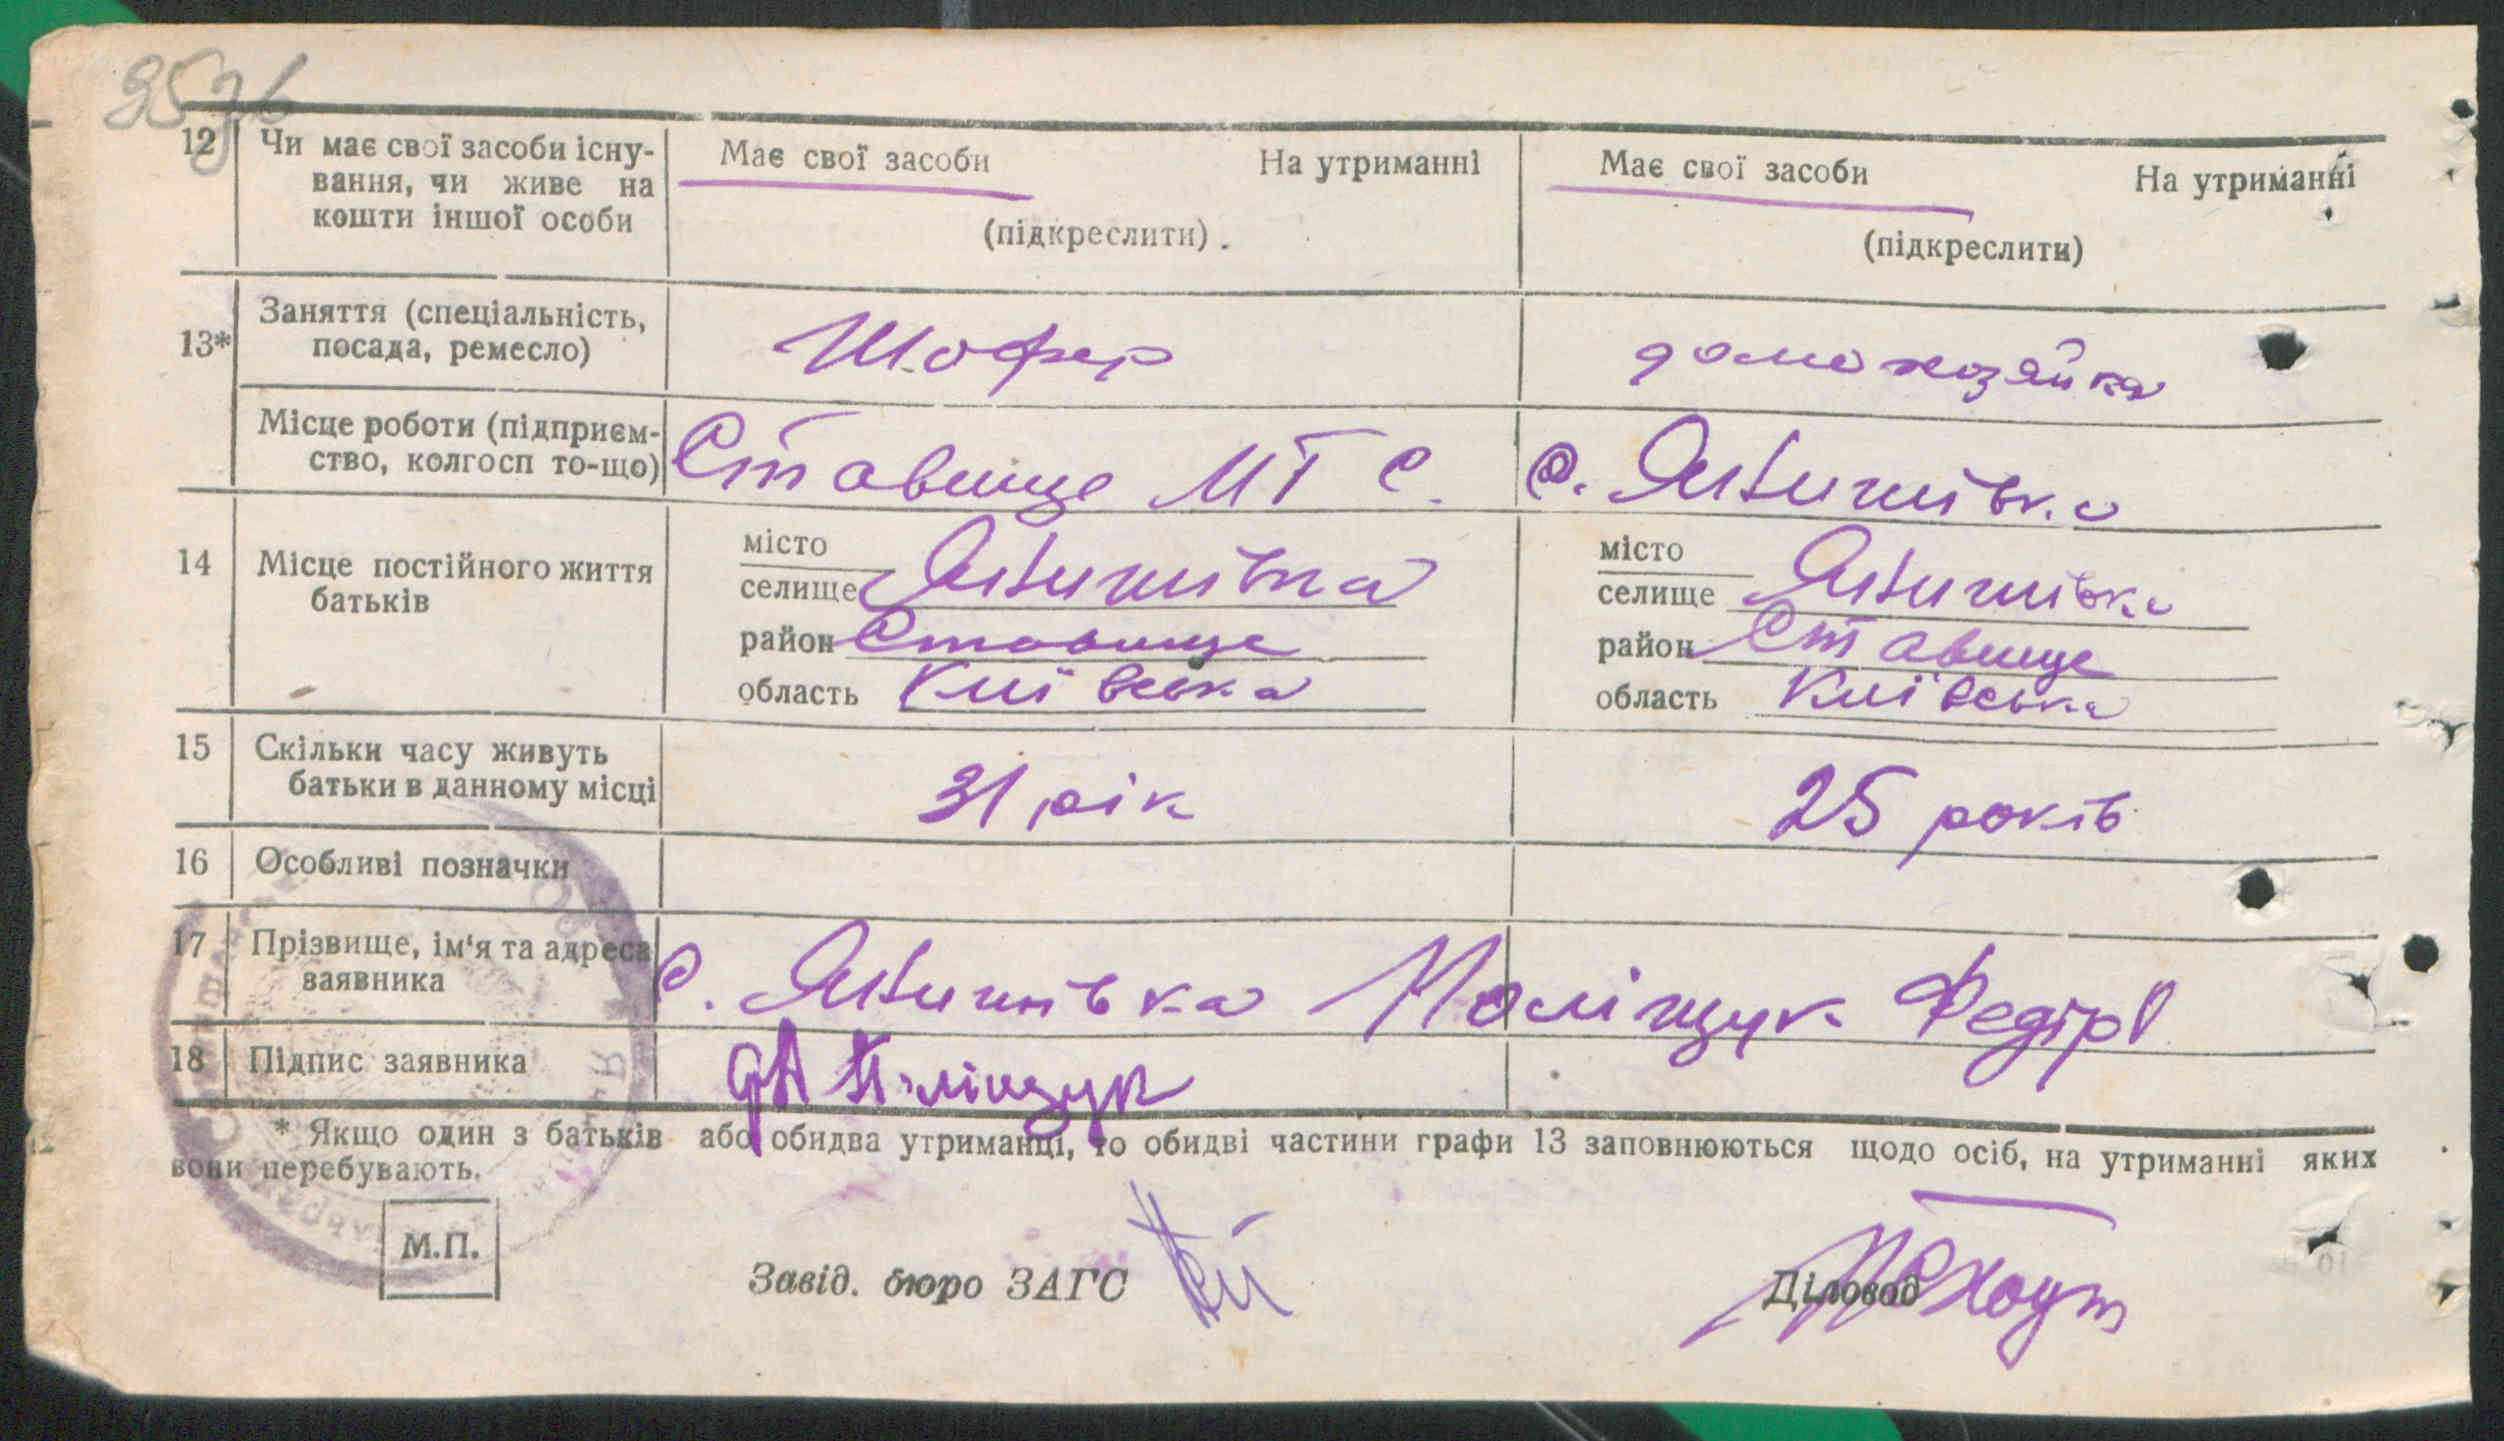 12 Чи має свої засоби існу- Має свої засоби На утриманні Має свої засоби На утриманні
вання, чи живе на
кошти іншої особи (підкреслити). (підкреслити)
13* Заняття (спеціальність, Шофер домохозяйка
посада, ремесло)
Місце роботи (підприєм- Ставище МТС. с. Янишівка
ство, колгосп то-що)
14 Місце постійного життя місто місто
батьків селище Янишівка селище Янишівка
район Ставище район Ставище
область Київська область Київська
15 Скільки часу живуть 31 рік 25 років
батьки в данному місці
16 Особливі позначки
17 Прізвище, ім'я та адреса с. Янишівка Поліщук Федір
заявника
18 Підпис заявника Поліщук
* Якщо один з батьків або обидва утриманці, то обидві частини графи 13 заповнюються щодо осіб, на утриманні яких
вони перебувають.
М.П.
Завід. бюро ЗАГС Діловод